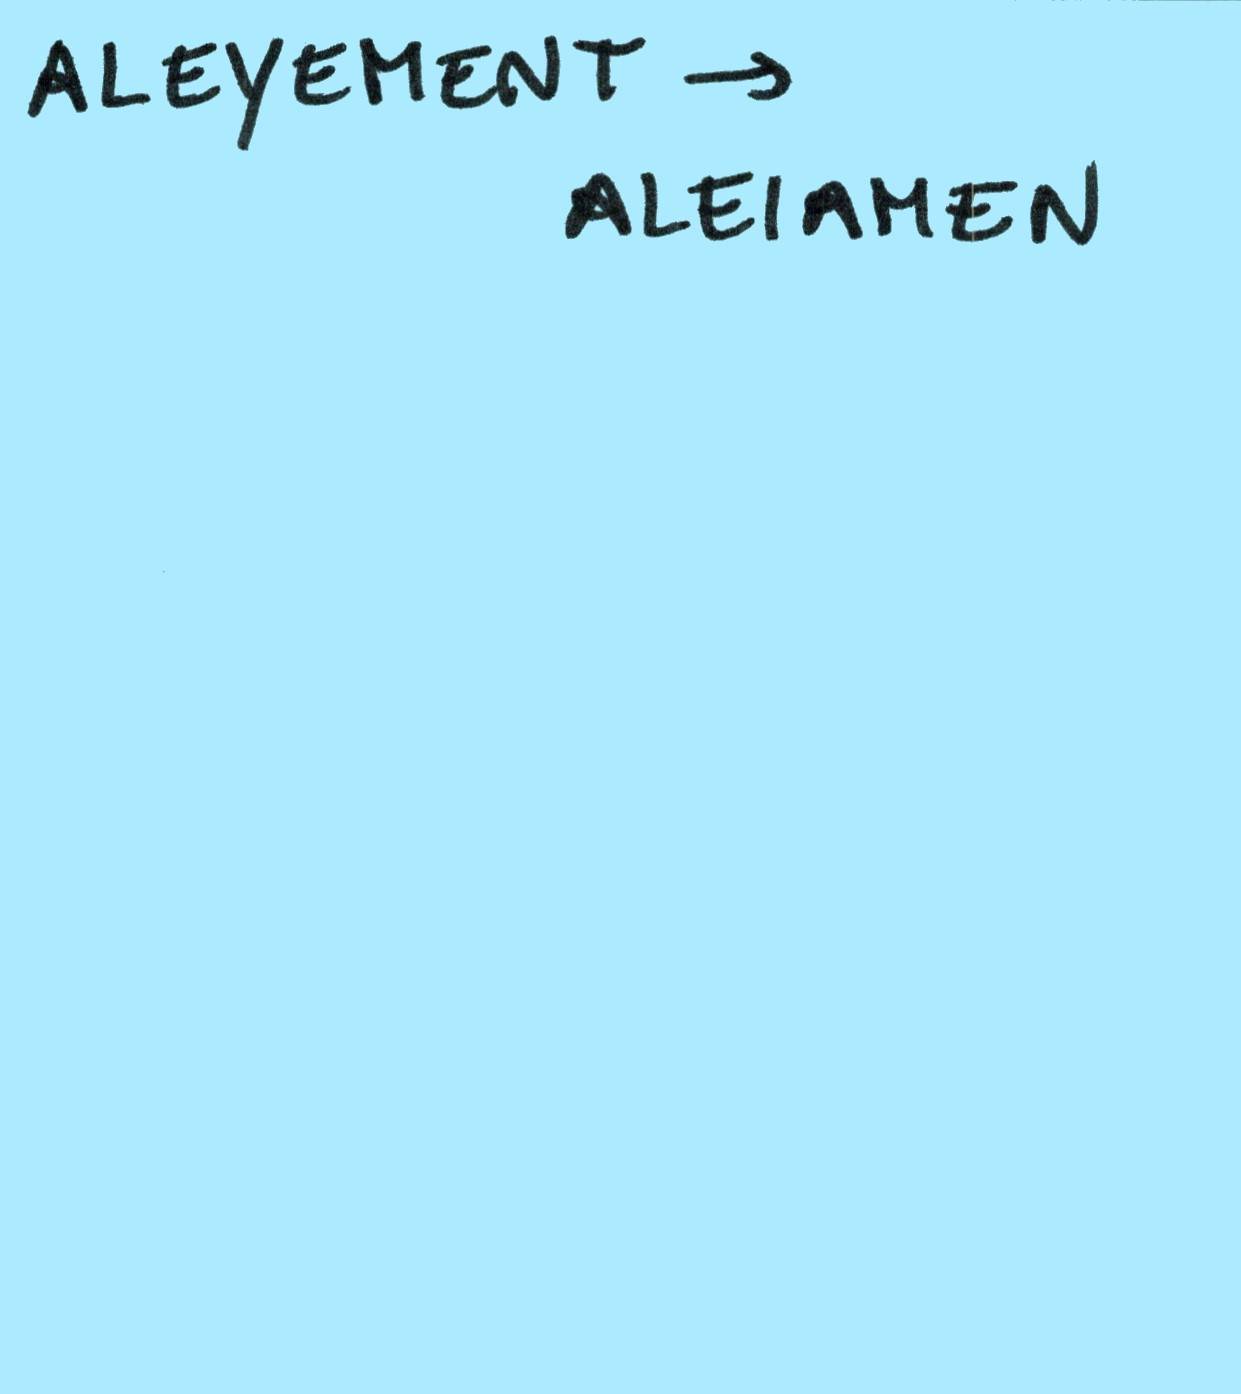 ALEYEMENT →
ALEIAMEN